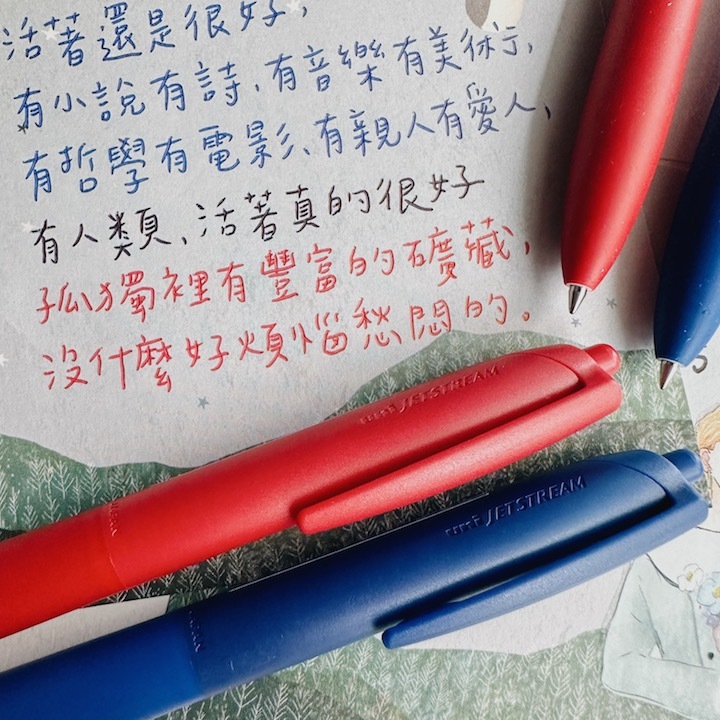 活著還是很好，
有小說有詩、有音樂有美術，
有哲學有電影、有親人有愛人，
有人類、活著真的很好
孤獨裡有豐富的礦藏，
沒什麼好煩惱愁悶的。
uni JETSTREAM
uni JETSTREAM